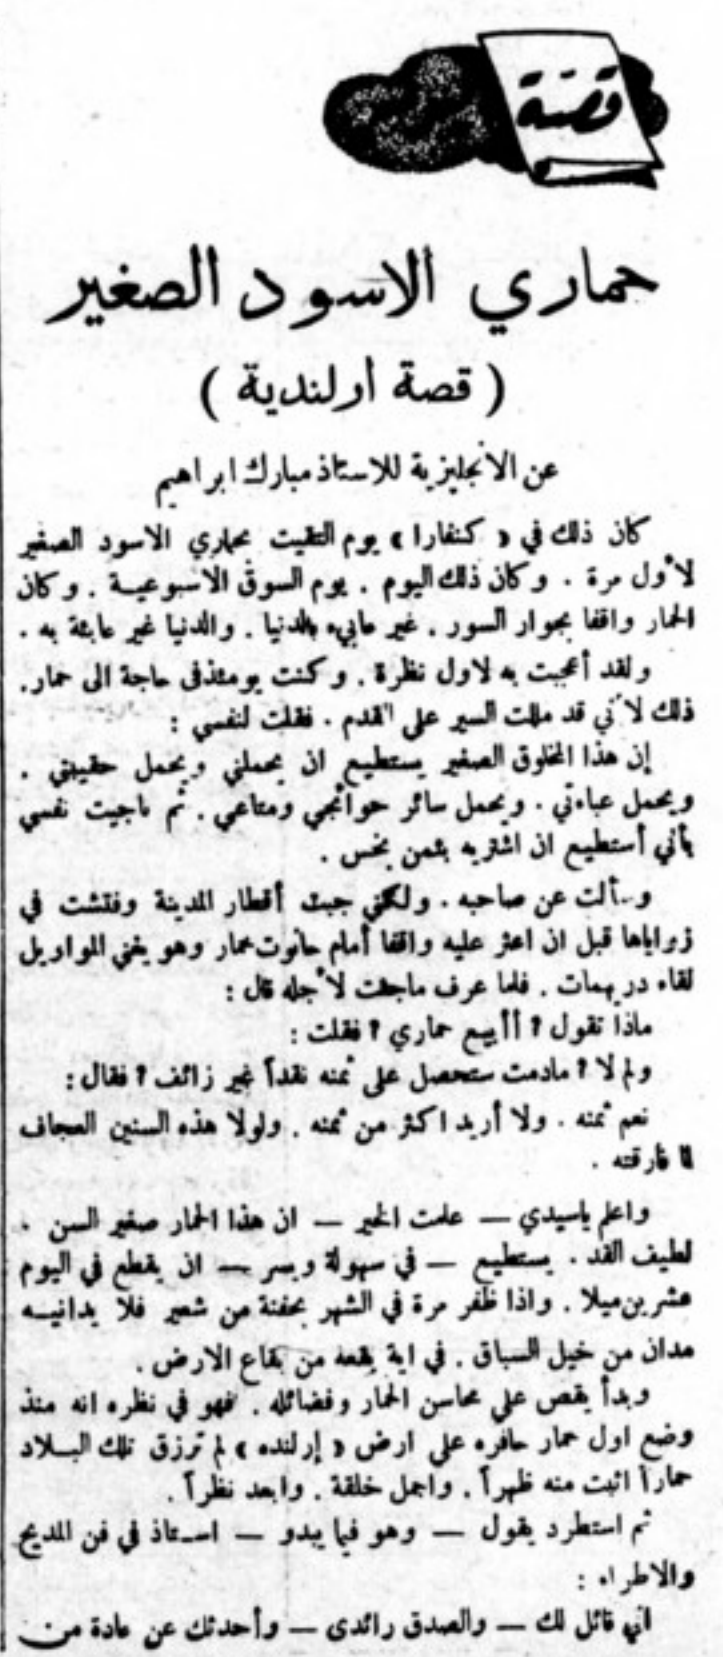 قصة
حماري الاسود الصغير
( قصة أرلندية )
عن الانجليزية للاستاذ مبارك ابراهيم
كان ذلك في « كنفارا » يوم التقيت بحماري الاسود الصغير
لأول مرة . وكان ذلك اليوم . يوم السوق الاسبوعية . وكان
الحمار واقفا بجوار السور . غير عابىء بالدنيا . والدنيا غير عابئة به .
ولقد أعجبت به لاول نظرة . وكنت يومئذفى حاجة الى حمار.
ذلك لأني قد مللت السير على القدم . فقلت لنفسي :
إن هذا المخلوق الصغير يستطيع ان يحملني ويحمل حقيبتي .
ويحمل عباءتي . ويحمل سائر حوائجي ومتاعي . ثم ناجيت نفسي
بأني أستطيع ان اشتريه بثمن بخس .
وسألت عن صاحبه . ولكني جبت أقطار المدينة وفتشت في
زواياها قبل ان اعثر عليه واقفا أمام حانوت خمار وهو يغني المواويل
لقاء دريهمات . فلما عرف ماجئت لأجله قال :
ماذا تقول ؟ أأبيع حماري ؟ فقلت :
ولم لا ؟ مادمت ستحصل على ثمنه نقداً غير زائف ؟ فقال :
نعم ثمنه . ولا أريد اكثر من ثمنه . ولولا هذه السنين العجاف
لما فارقته .
واعلم ياسيدي — علمت الخير — ان هذا الحمار صغير السن .
لطيف القد . يستطيع — في سهولة ويسر — ان يقطع في اليوم
عشرين ميلا . واذا ظفر مرة في الشهر بحفنة من شعير فلا يدانيه
مدان من خيل السباق . في اية بقعه من بقاع الارض .
وبدأ يقص علي محاسن الحمار وفضائله . فهو في نظره انه منذ
وضع اول حمار حافره على ارض « إرلنده » لم ترزق تلك البلاد
حماراً اثبت منه ظهراً . واجمل خلقة . وابعد نظراً .
ثم استطرد يقول — وهو فيما يبدو — استاذ في فن المديح
والاطراء :
اني قائل لك — والصدق رائدى — وأحدثك عن عادة من